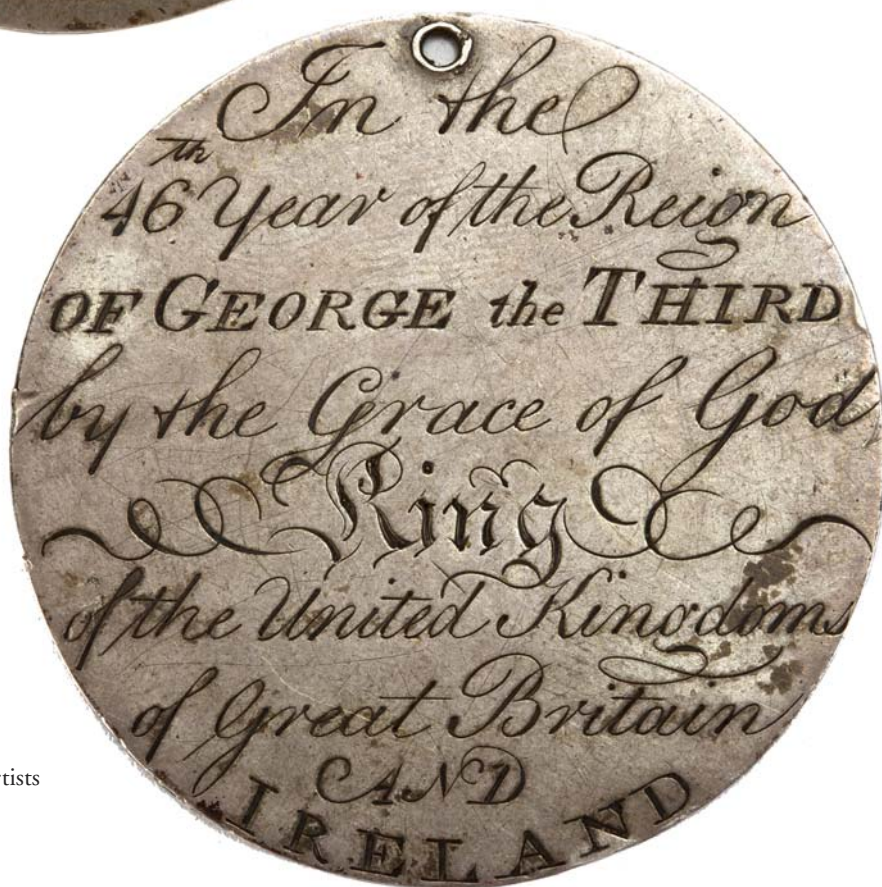 In the
46th Year of the Reign
OF GEORGE the THIRD
by the Grace of God
King
of the United Kingdoms
of Great Britain
AND
IRELAND